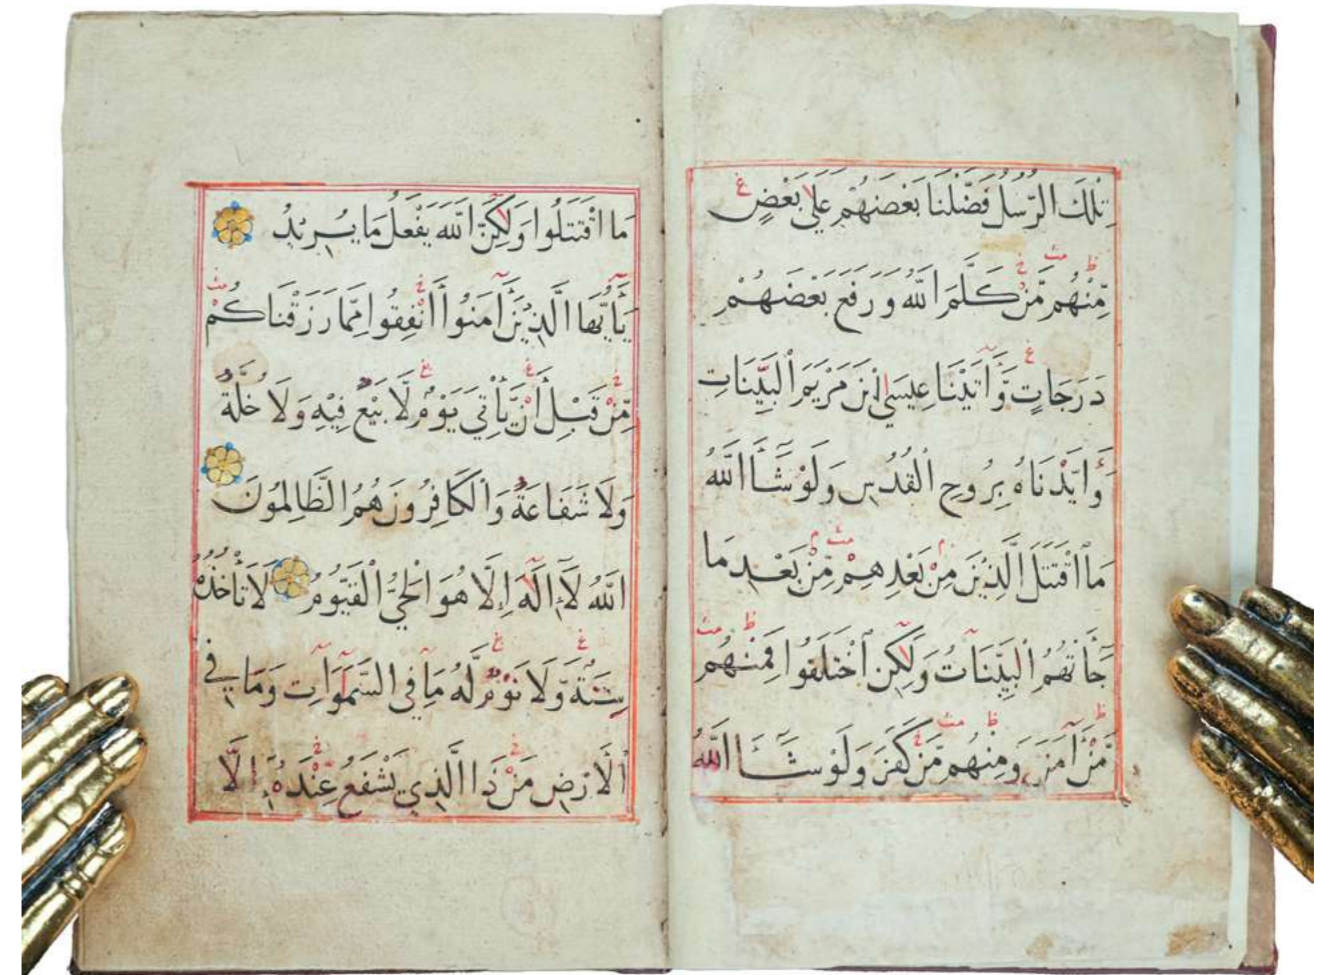 تِلْكَ الرُّسُلُ فَضَّلْنَا بَعْضَهُمْ عَلَى بَعْضٍ
مِّنْهُم مَّنْ كَلَّمَ اللَّهُ وَرَفَعَ بَعْضَهُمْ
دَرَجَاتٍ وَّآتَيْنَا عِيسَى ابْنَ مَرْيَمَ الْبَيِّنَاتِ
وَأَيَّدْنَاهُ بِرُوحِ الْقُدُسِ وَلَوْ شَآ اللَّهُ
مَا اقْتَتَلَ الَّذِيْنَ مِنْ بَعْدِهِمْ مِّنْ بَعْدِ مَا
جَآتْهُمُ الْبَيِّنَاتُ وَلَكِنِ اخْتَلَفُوا فَمِنْهُم
مَّنْ آمَنَ وَمِنْهُم مَّنْ كَفَرَ وَلَوْ شَآ اللَّهُ
مَا اقْتَتَلُوا وَلَكِنَّ اللَّهَ يَفْعَلُ مَا يُرِيْدُ
يَآأَيُّهَا الَّذِيْنَ آمَنُوا أَنْفِقُوا مِمَّا رَزَقْنَاكُمْ
مِّنْ قَبْلِ أَنْ يَّأْتِيَ يَوْمٌ لَّا بَيْعٌ فِيْهِ وَلَا خُلَّةٌ
وَلَا شَفَاعَةٌ وَالْكَافِرُونَ هُمُ الظَّالِمُونَ
اللَّهُ لَآ إِلَهَ إِلَّا هُوَ الْحَيُّ الْقَيُّوْمُ لَا تَأْخُذُهُ
سِنَةٌ وَّلَا نَوْمٌ لَّهُ مَا فِي السَّمَوَاتِ وَمَا فِي
الْأَرْضِ مَنْ ذَا الَّذِي يَشْفَعُ عِنْدَهُ إِلَّا